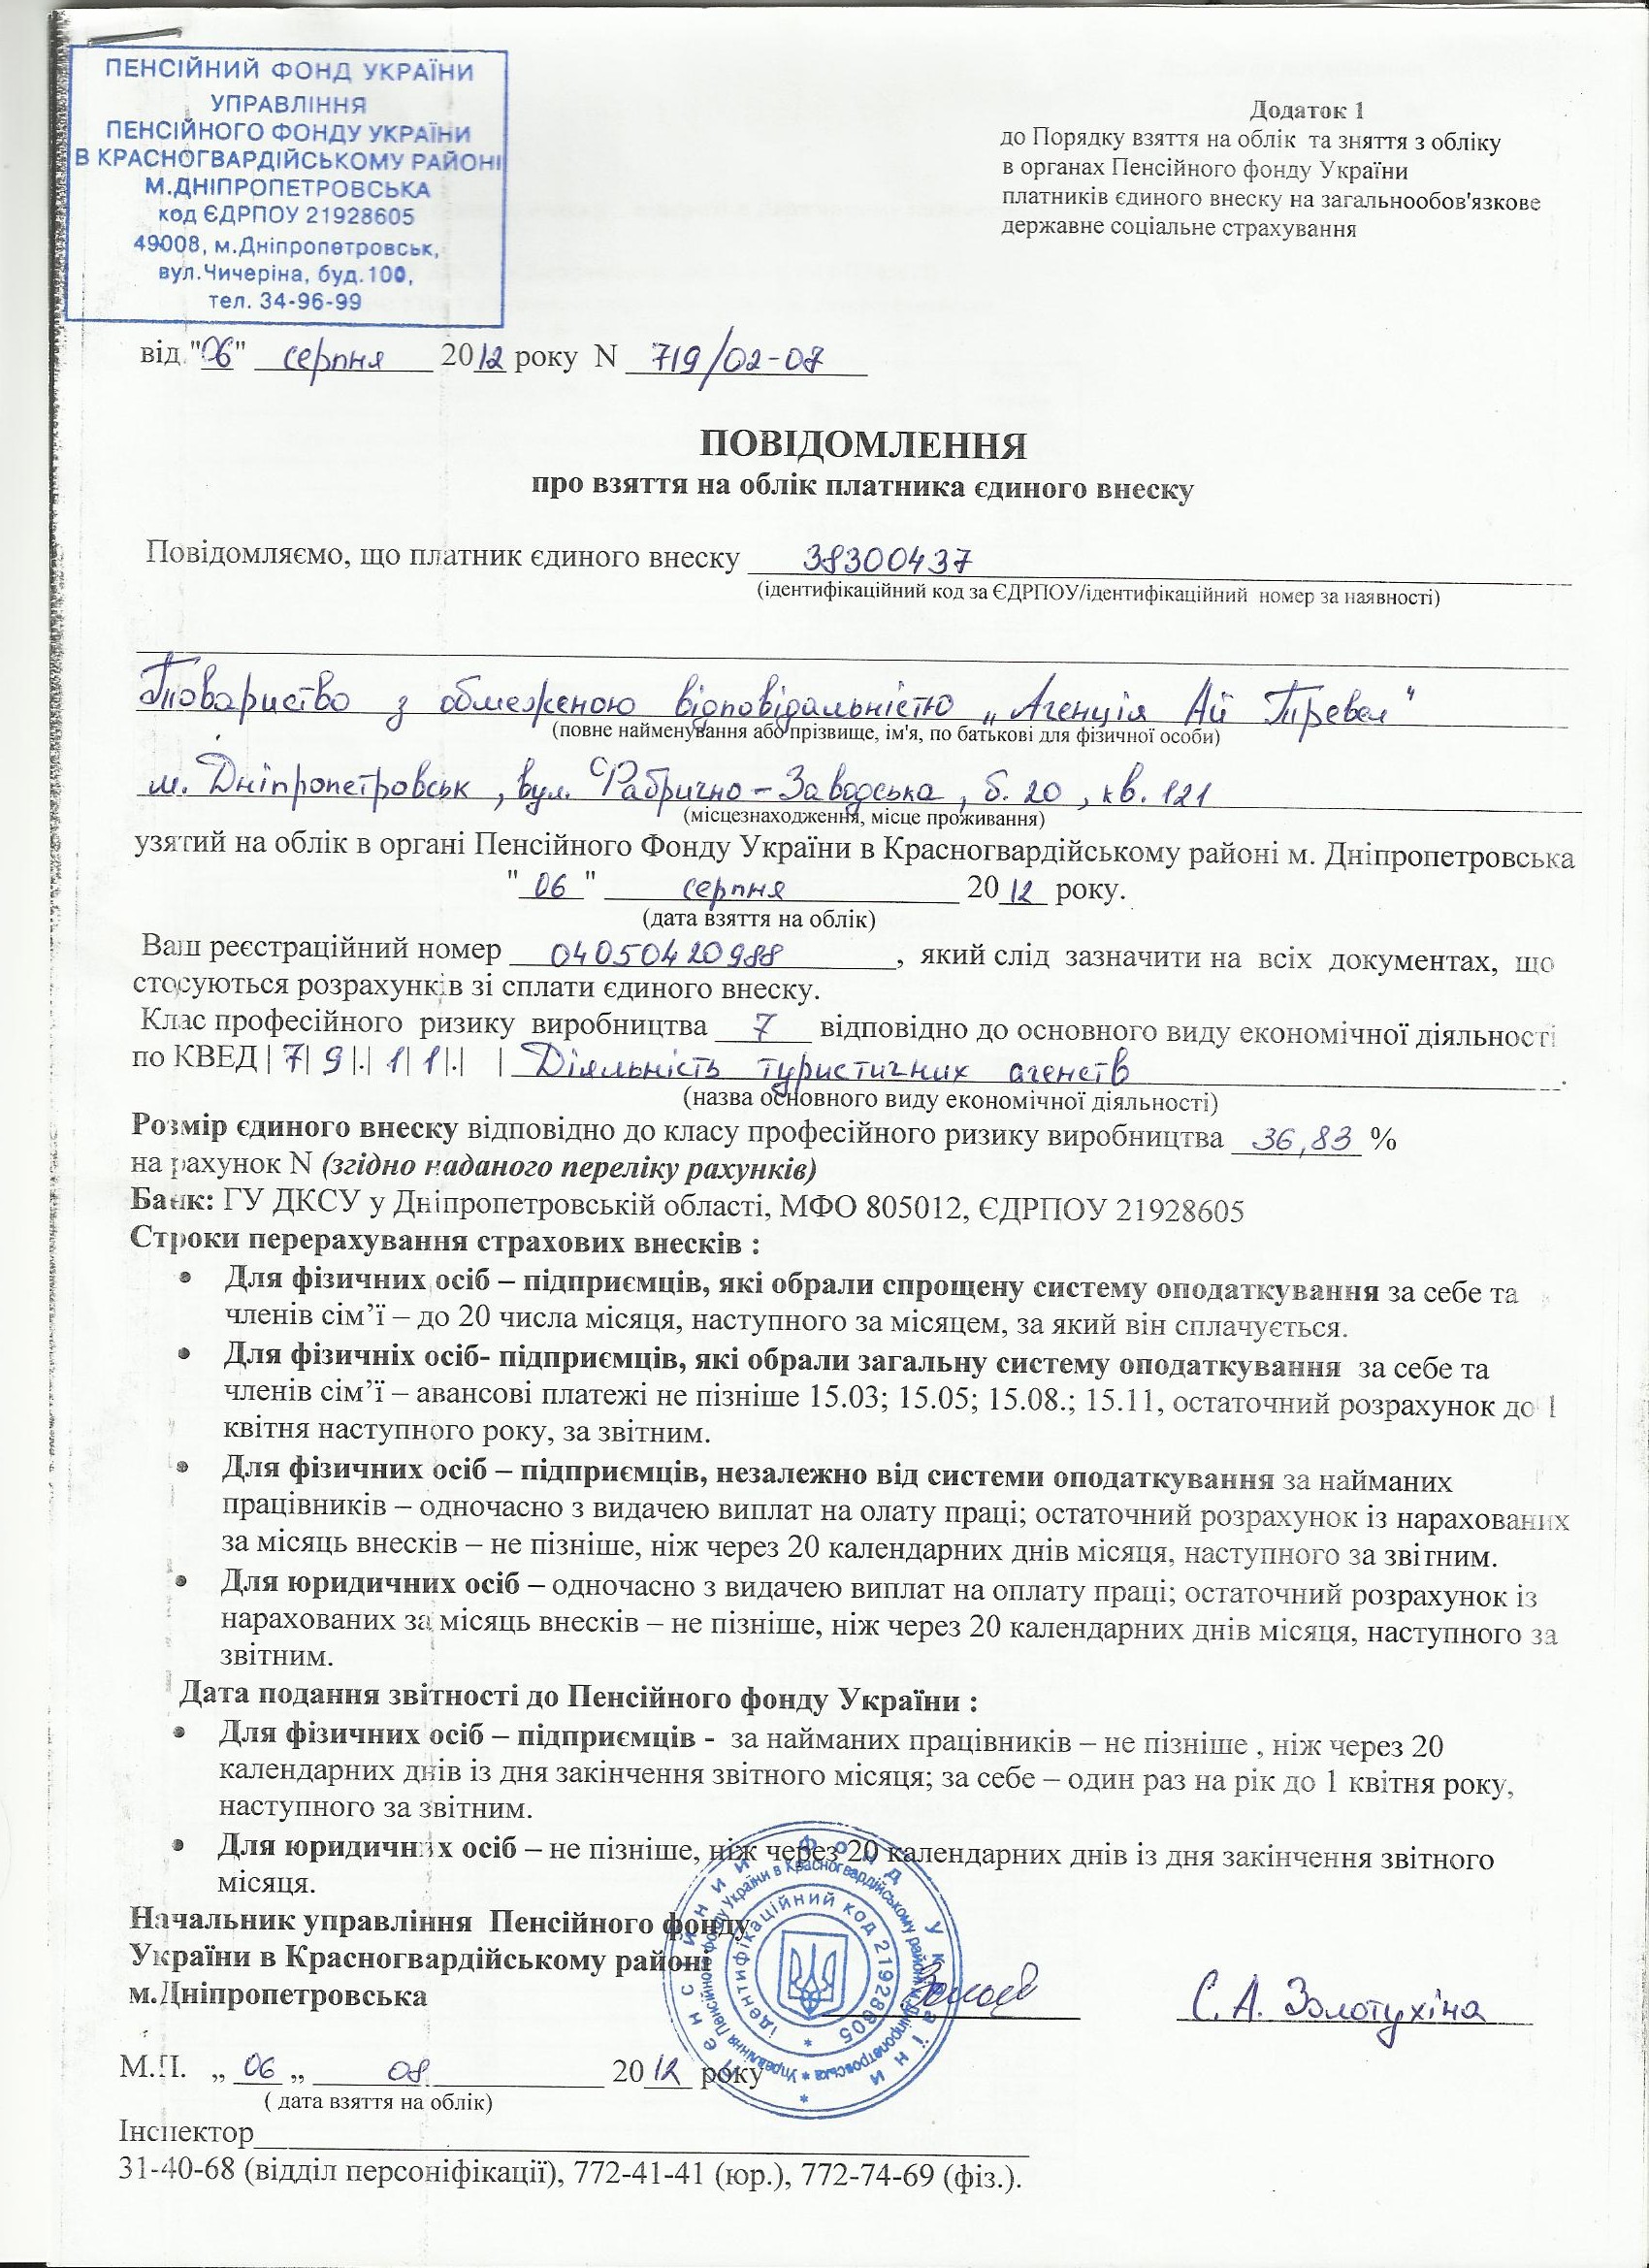 ПЕНСІЙНИЙ ФОНД УКРАЇНИ
УПРАВЛІННЯ
ПЕНСІЙНОГО ФОНДУ УКРАЇНИ
В КРАСНОГВАРДІЙСЬКОМУ РАЙОНІ
М.ДНІПРОПЕТРОВСЬКА
код ЄДРПОУ 21928605
49008, м.Дніпропетровськ,
вул.Чичеріна, буд.100,
тел. 34-96-99
Додаток 1
до Порядку взяття на облік та зняття з обліку
в органах Пенсійного фонду України
платників єдиного внеску на загальнообов'язкове
державне соціальне страхування
від "06" серпня 2012 року N 719/02-07
ПОВІДОМЛЕННЯ
про взяття на облік платника єдиного внеску
Повідомляємо, що платник єдиного внеску 38300437
(ідентифікаційний код за ЄДРПОУ/ідентифікаційний номер за наявності)
Товариство з обмеженою відповідальністю „Агенція Ай Тревел"
(повне найменування або прізвище, ім'я, по батькові для фізичної особи)
м. Дніпропетровськ, вул. Фабрично-Заводська, б. 20, кв. 121
(місцезнаходження, місце проживання)
узятий на облік в органі Пенсійного Фонду України в Красногвардійському районі м. Дніпропетровська
"06" серпня 2012 року.
(дата взяття на облік)
Ваш реєстраційний номер 04050420988, який слід зазначити на всіх документах, що
стосуються розрахунків зі сплати єдиного внеску.
Клас професійного ризику виробництва 7 відповідно до основного виду економічної діяльності
по КВЕД | 7| 9 |.| 1| 1|.| | Діяльність туристичних агенств.
(назва основного виду економічної діяльності)
Розмір єдиного внеску відповідно до класу професійного ризику виробництва 36,83 %
на рахунок N (згідно наданого переліку рахунків)
Банк: ГУ ДКСУ у Дніпропетровській області, МФО 805012, ЄДРПОУ 21928605
Строки перерахування страхових внесків :
• Для фізичних осіб – підприємців, які обрали спрощену систему оподаткування за себе та
членів сім’ї – до 20 числа місяця, наступного за місяцем, за який він сплачується.
• Для фізичніх осіб- підприємців, які обрали загальну систему оподаткування за себе та
членів сім’ї – авансові платежі не пізніше 15.03; 15.05; 15.08.; 15.11, остаточний розрахунок до 1
квітня наступного року, за звітним.
• Для фізичних осіб – підприємців, незалежно від системи оподаткування за найманих
працівників – одночасно з видачею виплат на олату праці; остаточний розрахунок із нарахованих
за місяць внесків – не пізніше, ніж через 20 календарних днів місяця, наступного за звітним.
• Для юридичних осіб – одночасно з видачею виплат на оплату праці; остаточний розрахунок із
нарахованих за місяць внесків – не пізніше, ніж через 20 календарних днів місяця, наступного за
звітним.
Дата подання звітності до Пенсійного фонду України :
• Для фізичних осіб – підприємців - за найманих працівників – не пізніше , ніж через 20
календарних днів із дня закінчення звітного місяця; за себе – один раз на рік до 1 квітня року,
наступного за звітним.
• Для юридичних осіб – не пізніше, ніж через 20 календарних днів із дня закінчення звітного
місяця.
Начальник управління Пенсійного фонду
України в Красногвардійському районі
м.Дніпропетровська
С.А. Золотухіна
Пенсійний фонд України
* Управління Пенсійного фонду України в Красногвардійському районі м.Дніпропетровська
ідентифікаційний код 21928605
М.П. „ 06 „ 08 2012 року
( дата взяття на облік)
Інспектор
31-40-68 (відділ персоніфікації), 772-41-41 (юр.), 772-74-69 (фіз.).